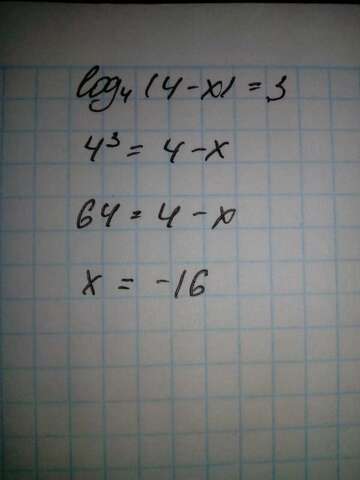 log₄(4-x)=3
4³=4-x
64=4-x
x=-16